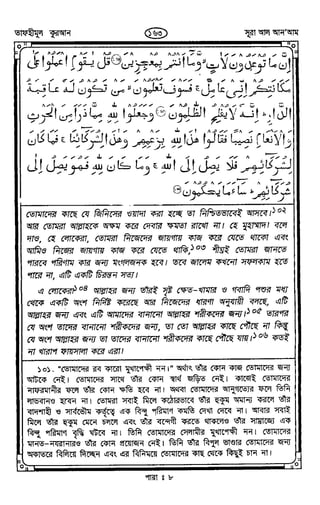 তাফহীমুল কুরআন
১৬৩
সূরা আল আন'আম
إِنَّ مَا تُوعَدُونَ لَآتٍ ۙ وَمَا أَنْتُمْ بِمُعْجِزِينَ ۝ قُلْ يٰقَوْمِ اعْمَلُوا عَلٰى
مَكَانَتِكُمْ إِنِّي عَامِلٌ ۚ فَسَوْفَ تَعْلَمُونَ ۙ مَنْ تَكُونُ لَهُ عَاقِبَةُ
الدَّارِ ۗ إِنَّهُ لَا يُفْلِحُ الظّٰلِمُونَ ۝ وَجَعَلُوا لِلّٰهِ مِمَّا ذَرَأَ مِنَ الْحَرْثِ
وَالْأَنْعَامِ نَصِيبًا فَقَالُوا هٰذَا لِلّٰهِ بِزَعْمِهِمْ وَهٰذَا لِشُرَكَائِنَا ۚ فَمَا كَانَ
لِشُرَكَائِهِمْ فَلَا يَصِلُ إِلَى اللّٰهِ ۚ وَمَا كَانَ لِلّٰهِ فَهُوَ يَصِلُ إِلٰى
شُرَكَائِهِمْ ۗ سَاءَ مَا يَحْكُمُونَ ۝
তোমাদের কাছে যে জিনিসের ওয়াদা করা হচ্ছে তা নিশ্চিতভাবেই আসবে।১০২
আর তোমরা আল্লাহকে অক্ষম করে দেবার ক্ষমতা রাখো না। হে মুহাম্মাদ! বলে
দাও, হে লোকেরা, তোমরা নিজেদের জায়গায় কাজ করে যেতে থাকো এবং
আমিও নিজের জায়গায় কাজ করে যেতে থাকি,১০৩ শীঘ্রই তোমরা জানতে
পারবে পরিণাম কার জন্য মংগলজনক হবে। তবে জালেম কখনো সফলকাম হতে
পারে না, এটি একটি চিরন্তন সত্য।
এ লোকেরা১০৪ আল্লাহর জন্য তাঁরই সৃষ্ট ক্ষেত-খামার ও গবাদি পশুর মধ্য
থেকে একটি অংশ নির্দিষ্ট করেছে আর নিজেদের ধারণা অনুযায়ী বলছে, এটি
আল্লাহর জন্য এবং এটি আমাদের বানানো আল্লাহর শরীকদের জন্য।১০৫ তারপর
যে অংশ তাদের বানানো শরীকদের জন্য, তা তো আল্লাহর কাছে পৌঁছে না কিন্তু
যে অংশ আল্লাহর জন্য তা তাদের বানানো শরীকদের কাছে পৌঁছে যায়।১০৬ কতই
না খারাপ ফায়সালা করে এরা!
১০১. "তোমাদের রব কারো মুখাপেক্ষী নন।" অর্থাৎ তাঁর কোন কাজ তোমাদের জন্য
আটকে নেই। তোমাদের সাথে তাঁর কোন স্বার্থ জড়িত নেই। কাজেই তোমাদের
নাফরমানীর ফলে তাঁর কোন ক্ষতি হবে না। অথবা তোমাদের আনুগত্যের ফলে তিনি
লাভবানও হবেন না। তোমরা সবাই মিলে কঠোরভাবে তাঁর হুকুম অমান্য করলে তাঁর
বাদশাহী ও সার্বভৌম কর্তৃত্বে এক বিন্দু পরিমাণ কমতি দেখা দেবে না। আবার সবাই
মিলে তাঁর হুকুম মেনে চললে এবং তাঁর বন্দেগী করতে থাকলেও তাঁর সাম্রাজ্যে এক
বিন্দু পরিমাণ বৃদ্ধি ঘটবে না। তিনি তোমাদের সেলামীর মুখাপেক্ষী নন। তোমাদের
মানত-নযরানারও তাঁর কোন প্রয়োজন নেই। তিনি তাঁর বিপুল ভাণ্ডার তোমাদের জন্য
অকাতরে বিলিয়ে দিচ্ছেন এবং এর বিনিময়ে তোমাদের কাছ থেকে কিছুই চান না।
পারা : ৮